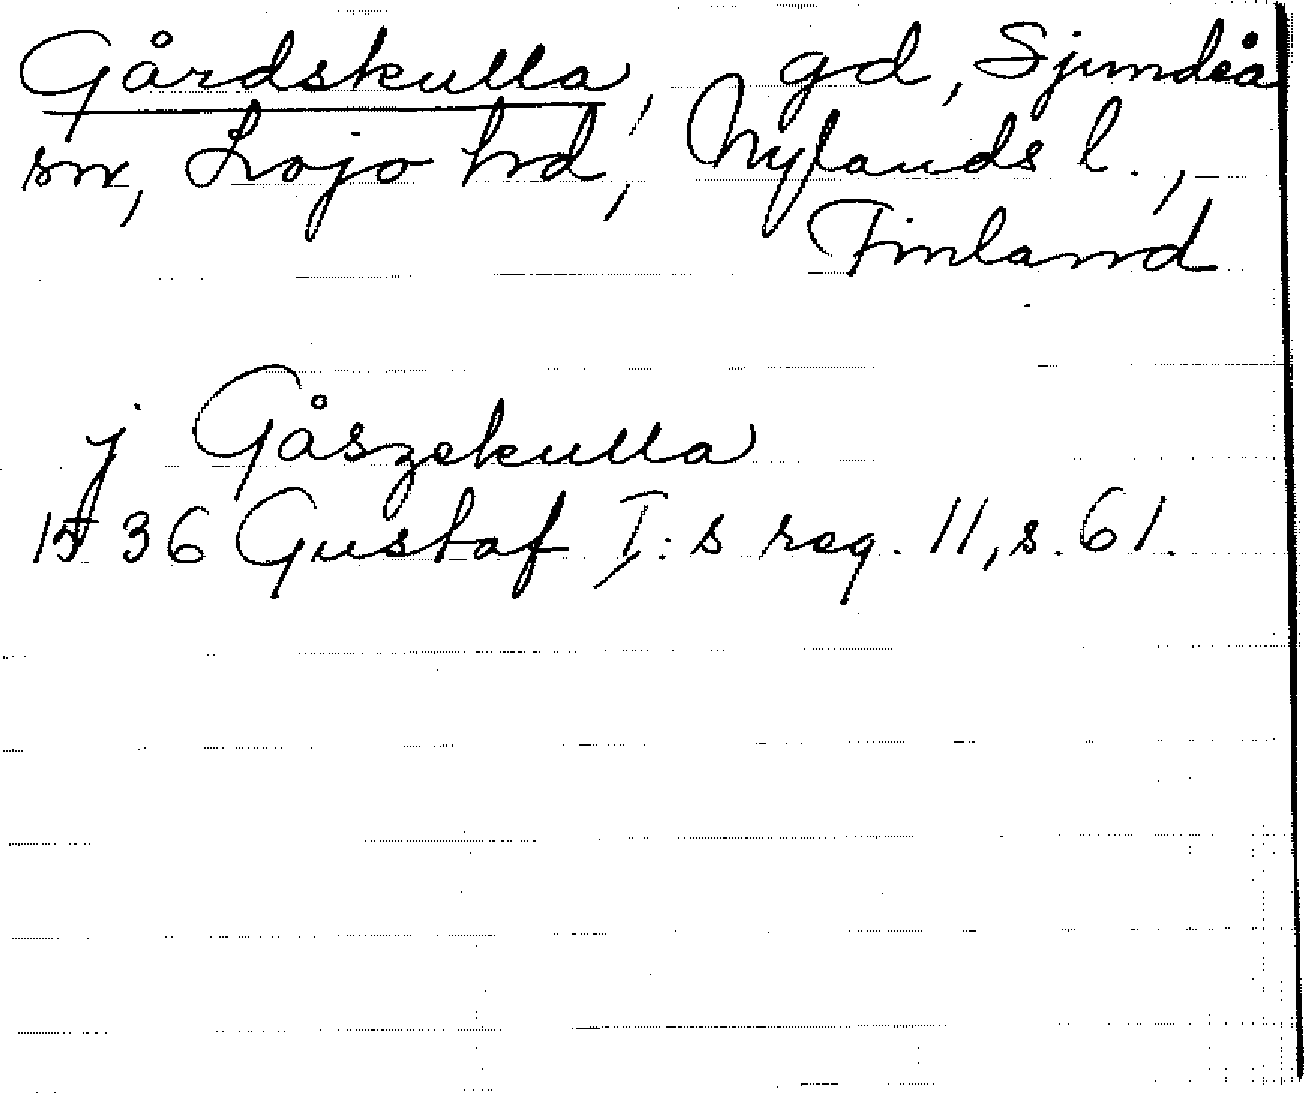 Gårdskulla, gd, Sjundeå
sn, Lojo hd, Nylands l.,
Finland
j Gåszekulla
1536 Gustaf I:s reg. 11, s. 61.